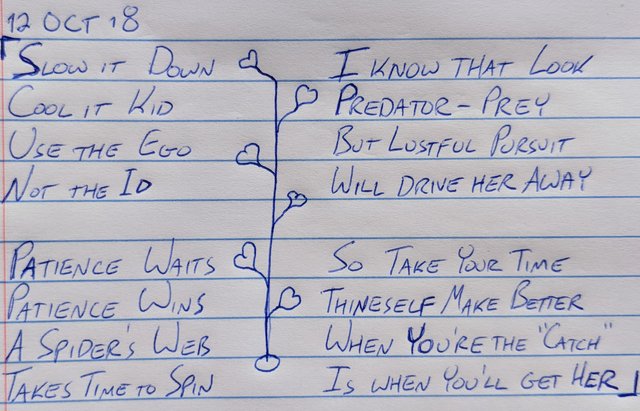 12 OCT 18
「SLOW IT DOWN
COOL IT KID
USE THE EGO
NOT THE ID
PATIENCE WAITS
PATIENCE WINS
A SPIDER'S WEB
TAKES TIME TO SPIN
I KNOW THAT LOOK
PREDATOR – PREY
BUT LUSTFUL PURSUIT
WILL DRIVE HER AWAY
SO TAKE YOUR TIME
THINESELF MAKE BETTER
WHEN YOU'RE THE "CATCH"
IS WHEN YOU'LL GET HER」